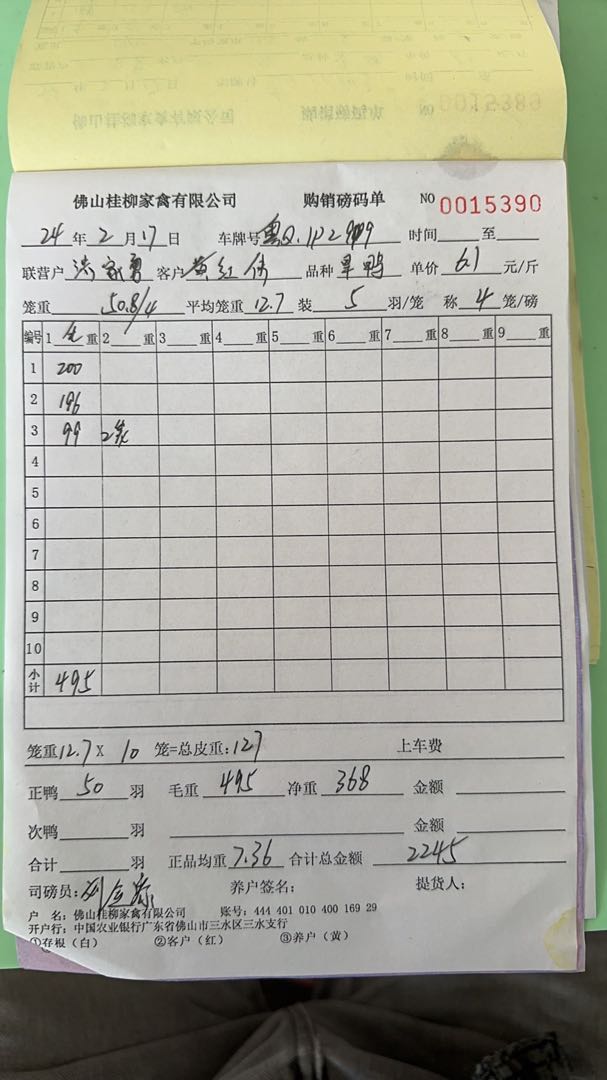 0015389
佛山桂柳家禽有限公司 购销磅码单 NO 0015390
24 年 2 月 17 日 车牌号 粤Q.1P2909 时间 至
联营户 洪家勇 客户 黄红伟 品种 旱鸭 单价 6.1 元/斤
笼重 50.8/4 平均笼重 12.7 装 5 羽/笼 称 4 笼/磅
编号 1 毛 重 2 重 3 重 4 重 5 重 6 重 7 重 8 重 9 重
1 200
2 196
3 99 2笼
4
5
6
7
8
9
10
小计 495
笼重 12.7 X 10 笼=总皮重: 127 上车费
正鸭 50 羽 毛重 495 净重 368 金额
次鸭 羽 金额
合计 羽 正品均重 7.36 合计总金额 2245
司磅员: 养户签名: 提货人:
户 名: 佛山桂柳家禽有限公司 账号: 444 401 010 400 169 29
开户行: 中国农业银行广东省佛山市三水区三水支行
①存根（白） ②客户（红） ③养户（黄）